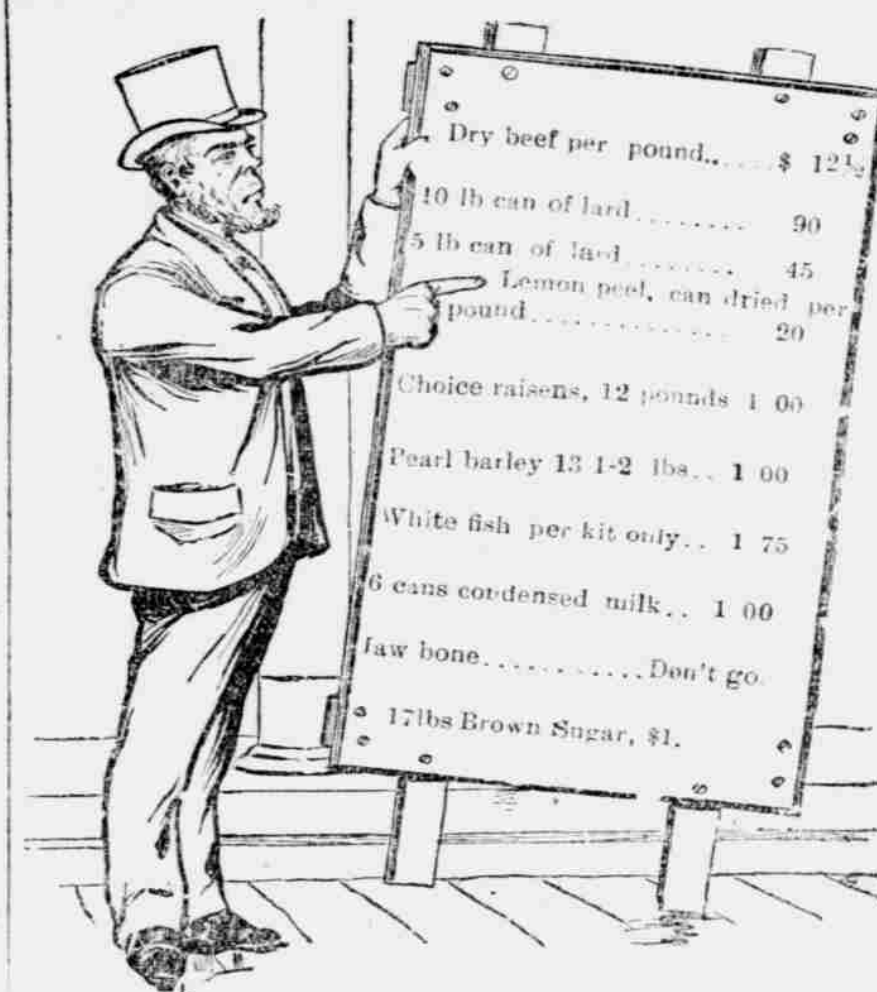 Dry beef per pound.. .... $ 12½
10 lb can of lard........ 90
5 lb can of lard......... 45
Lemon peel, can dried per
pound............... 20
Choice raisens, 12 pounds 1 00
Pearl barley 13 1-2 lbs.. 1 00
White fish per kit only.. 1 75
6 cans condensed milk.. 1 00
Jaw bone...........Don't go.
17lbs Brown Sugar, $1.